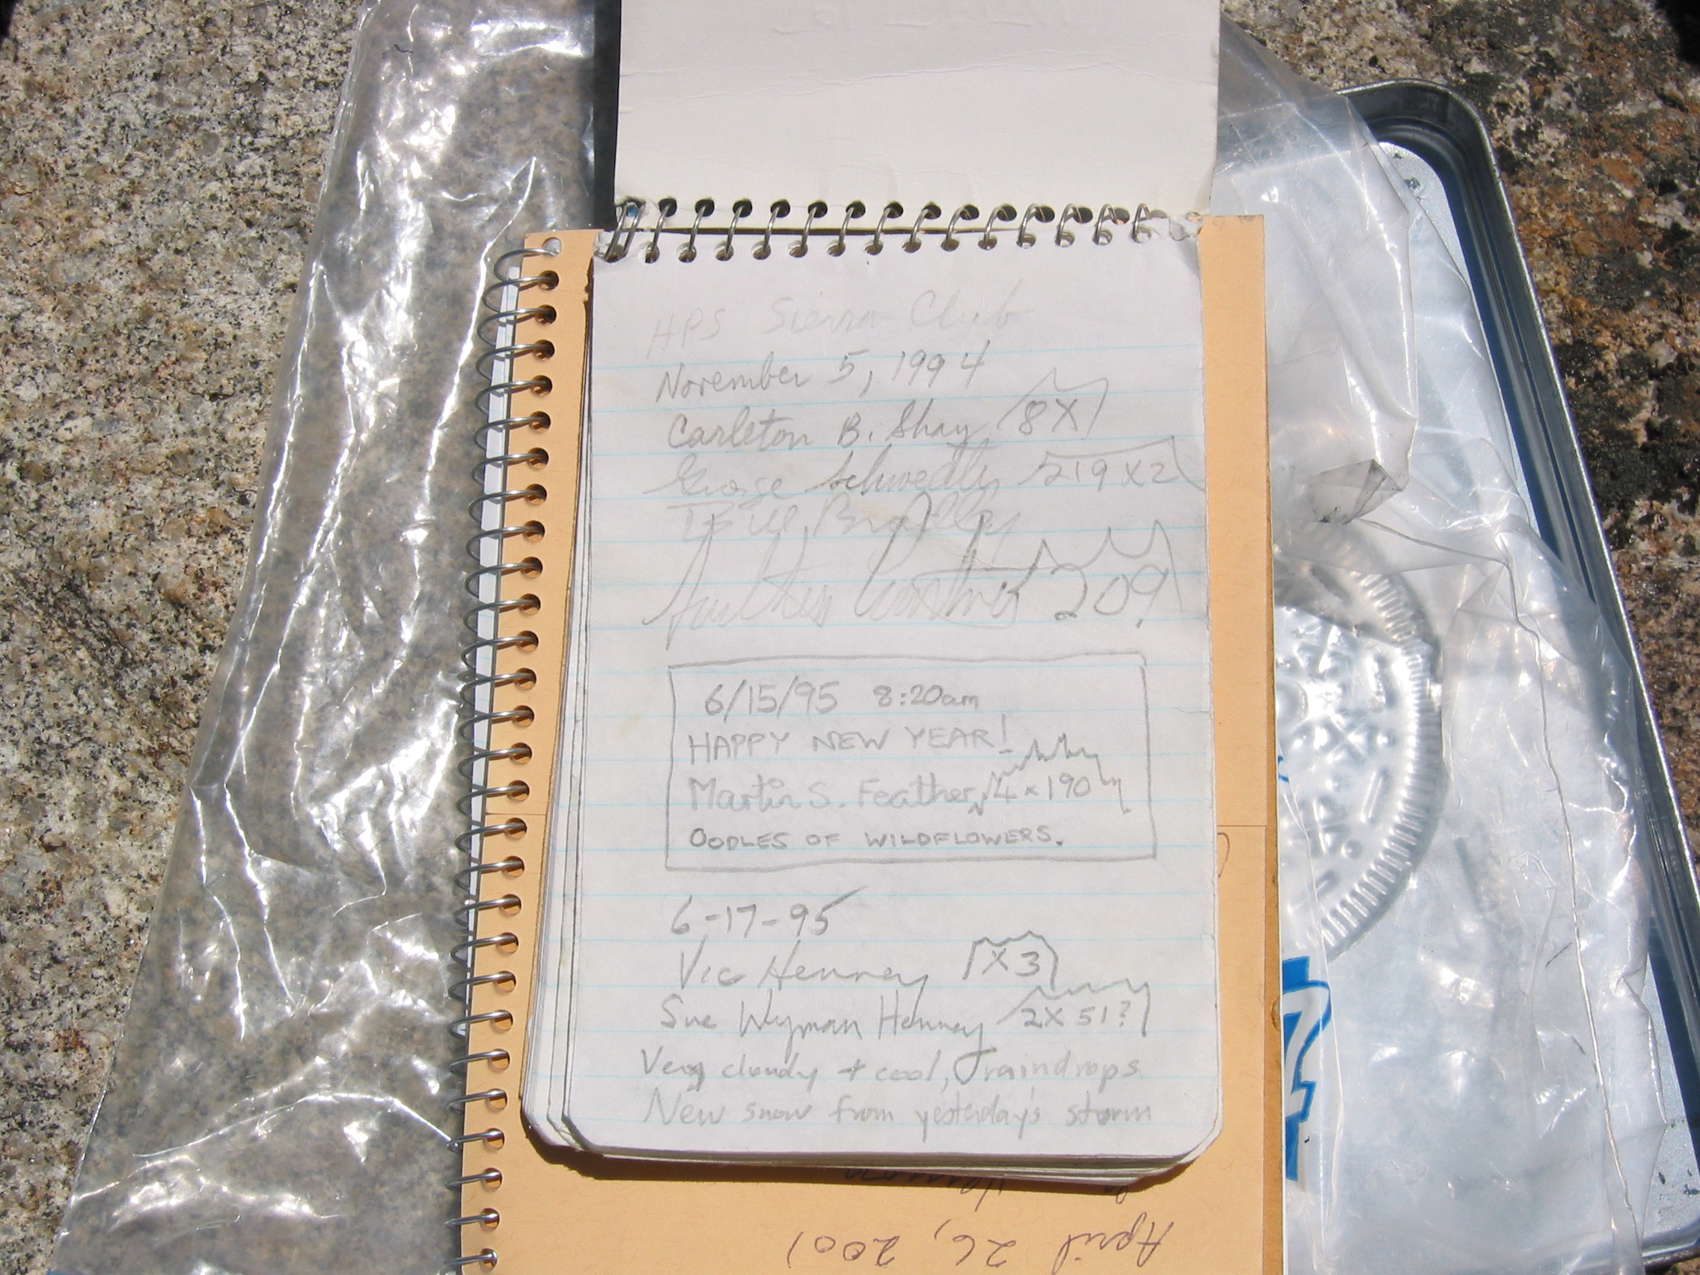 HPS Sierra Club
November 5, 1994
Carleton B. Shay 8X
George 219 X2
209
6/15/95 8:20am
HAPPY NEW YEAR!
Martin S. Feather 4 × 190
OODLES OF WILDFLOWERS.
6-17-95
Vic Henney X3
Sue Wyman Henney 2X 51?
Very cloudy + cool, raindrops
New snow from yesterday's storm
April 26, 2001